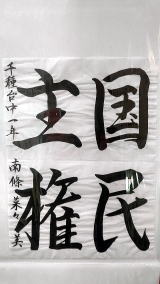 国民
主権
千種台中一年 南條菜々美